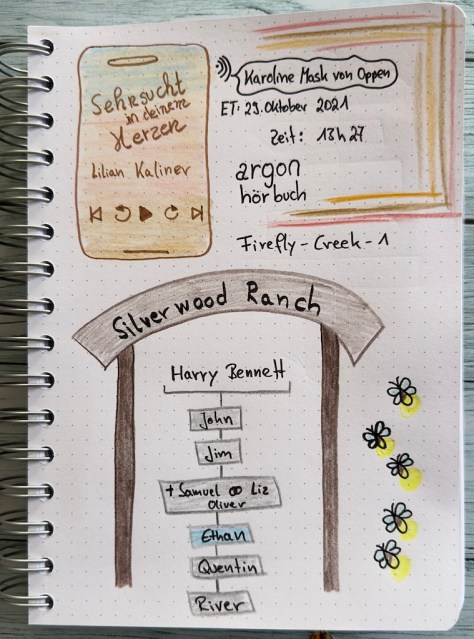 Sehnsucht
in deinem
Herzen
Lilian Kaliner
Karoline Mask von Oppen
ET: 29. Oktober 2021
Zeit: 13h27
argon
hörbuch
Firefly-Creek-1
Silverwood Ranch
Harry Bennett
John
Jim
†Samuel ⚭ Liz
Oliver
Ethan
Quentin
River